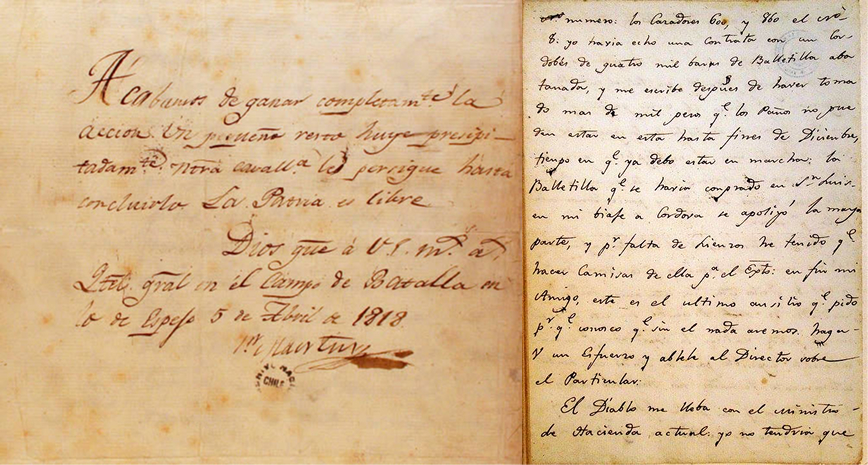 Acabamos de ganar completam.te la
accion. Un pequeño resto huye presipi-
tadam.te nra cavall.a lo persigue hasta
concluirlo. La Patria es libre
Dios gue à V.E. m.s a.s
Qtel. gral en el Campo de Batalla en
lo de Espejo 5 de Abril de 1818
Sn. Martin
CHILE
numero: los Cazadores 600, y 860 el
8: yo havia echo una Contrata con un Cor-
dobés de quatro mil baras de Balletilla aba
tanada, y me escribe despues de haver toma
do mas de mil pero q.e los Paños no pue
den estar en esta hasta fines de Diciembre,
tiempo en q.e ya debo estar en marcha: la
Balletilla q.e se havia comprado en Sn. Luis
en mi biaje a Cordova se apolijó la mayor
parte, y p.r falta de Lienzos he tenido q.e
hacer Camisas de ella p.a el Exto: en fin mi
Amigo, este es el ultimo ausilio q.e pido
p.r q.e conosco q.e sin el nada aremos. haga
V un Esfuerzo y ablele al Director sobre
el Particular:
El Diablo me lleba con el Ministro
de Hacienda actual: yo no tendria que